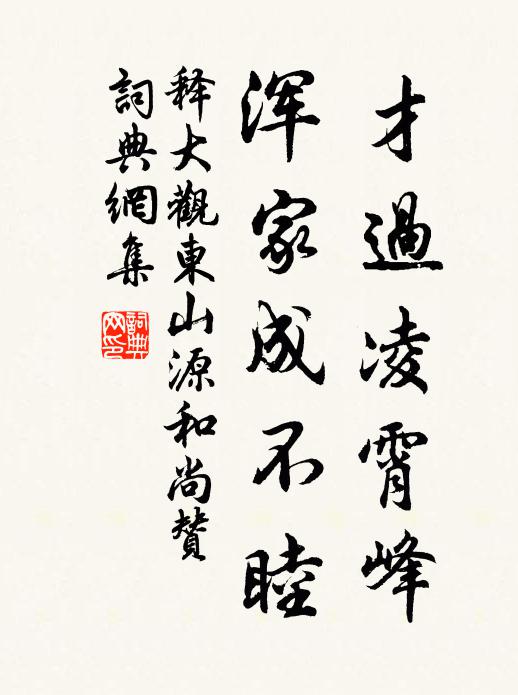 才過凌霄峰
浑家成不睦
释大觀東山源和尚贊
詞典網集
詞典
网印